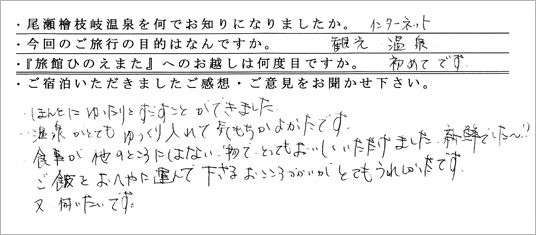 ・尾瀬檜枝岐温泉を何でお知りになりましたか。 インターネット
・今回のご旅行の目的はなんですか。 観光 温泉
・『旅館ひのえまた』へのお越しは何度目ですか。 初めてです
・ご宿泊いただきましたご感想・ご意見をお聞かせ下さい。
・ほんとにゆったりとすごすことができました
・温泉がとてもゆっくり入れて気もちがよかたです
食事が他のところにはない物で、とってもおいしくいただけました。新鮮でした〜!!
ご飯をおへやに運んで下さるおこころづかいがとてもうれしかたです。
又伺いたいです。